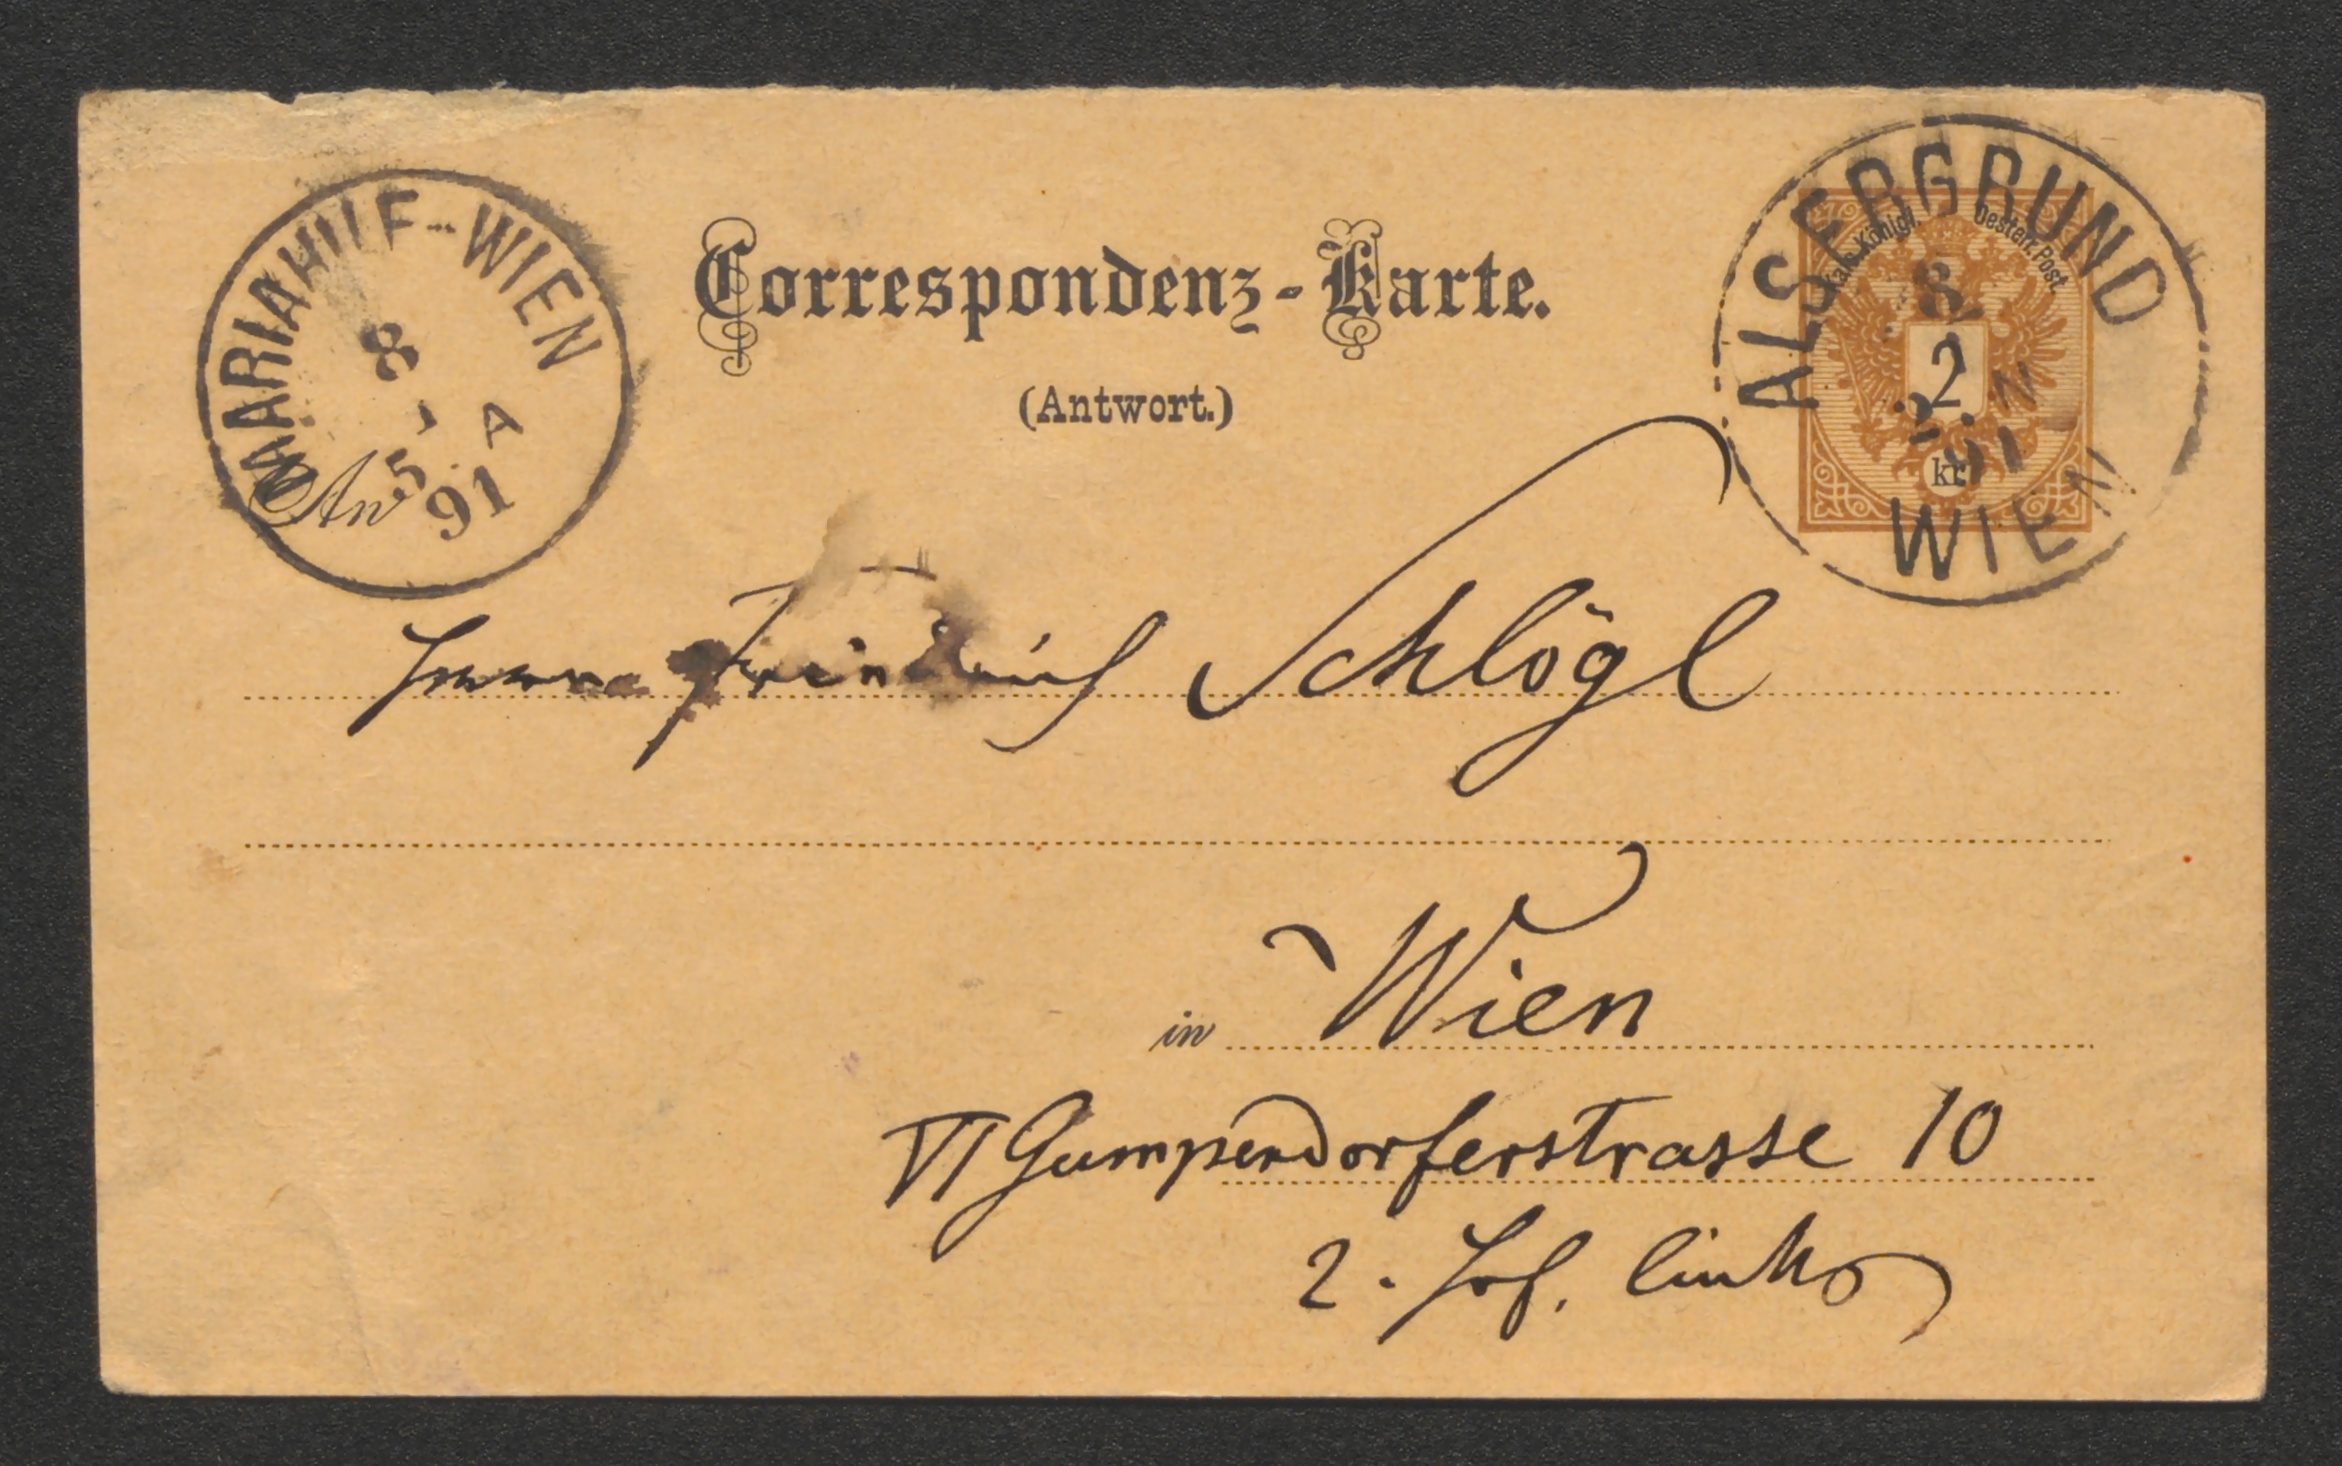 MARIAHILF-WIEN
8
5 A
91
Correspondenz-Karte.
(Antwort.)
ALSERGRUND
Kais. Königl. Oesterr. Post.
8
2
91 N
kr.
WIEN
An
Herrn Friedrich Schlögl
in Wien
VI Gumpendorferstrasse 10
2. Hof, links